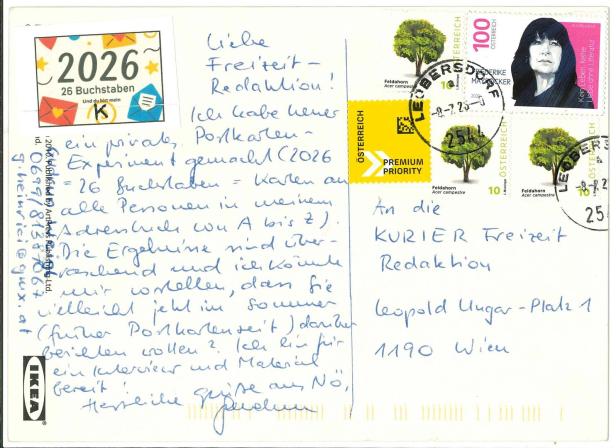 2026
26 Buchstaben
Und du bist mein
K
Liebe
Freizeit-
Redaktion!
Ich habe heuer
ein privates Postkarten-
Experiment gemacht (2026
= 26 Buchstaben = Karten an
alle Personen in meinem
Adressbuch von A bis Z).
Die Ergebnisse sind über-
raschend und ich könnte
mir vorstellen, dass Sie
vielleicht jetzt im Sommer
(früher Postkartenzeit) darüber
berichten wollen? Ich bin für
ein Interview und Material
bereit!
Herzliche Grüße aus NÖ,
IKEA
Feldahorn
Acer campestre
10
ÖSTERREICH
100
ÖSTERREICH
LEOBERSDORF
2544
ÖSTERREICH
PREMIUM
PRIORITY
Feldahorn
Acer campestre
10
ÖSTERREICH
Feldahorn
Acer campestre
10
LEOBERSD
An die
KURIER Freizeit
Redaktion
Leopold Ungar-Platz 1
1190 Wien